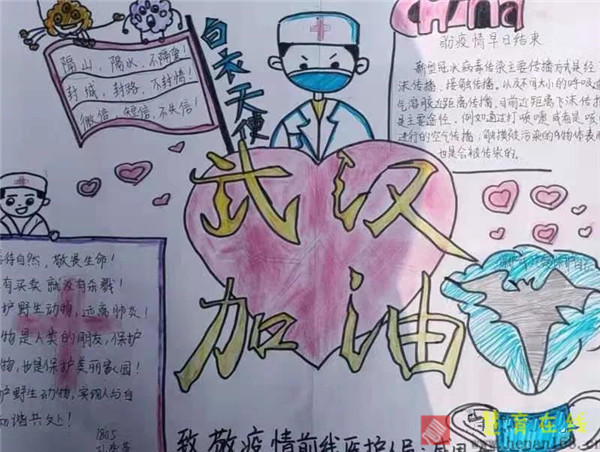 隔山,隔水,不隔爱!
封城,封路,不封情!
微信,短信,不失信!
白衣天使
China
盼疫情早日结束
新型冠状病毒传染主要传播方式是经
沫传播,接触传播。以及不同大小的呼吸道
气溶胶近距离传播,目前近距离飞沫传播
是主要途径,例如通过打喷嚏或者是咳
进行的空气传播;触摸被污染的物体表面
也是会被传染的。
武汉
加油
待自然,敬畏生命!
有买卖就没有杀戮!
护野生动物,远离肺炎!
物是人类的朋友,保护
物,也是保护美丽家园!
护野生动物,实现人与自
谐共处!
1805
致敬疫情前线医护人员:
教育在线